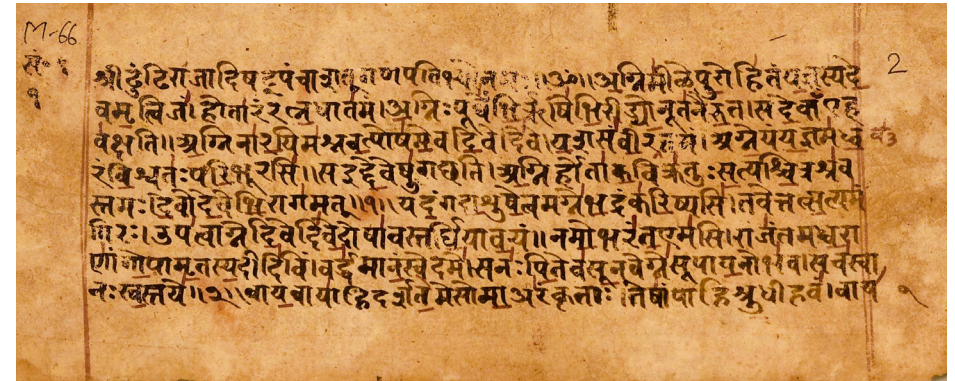 M-66
सं॰ १
१
2
श्रीढुंढिराजादिषट्पंचा गणपति ॥ॐ॥ अग्निमीळेपुरोहितंयज्ञस्यदे
वमृत्विजं।होतारंरत्नधातमं।अग्निःपूर्वेभिर्ऋषिभिरीड्योनूतनैरुत।सदेवाँएह
वक्षति॥अग्निनारयिमश्नवत्पोषमेवदिवेदिवे।यशसंवीरवत्तमं।अग्नेयंयज्ञमध्व
रंविश्वतःपरिभूरसि।सइद्देवेषुगछति।अग्निर्होताकविक्रतुःसत्यश्चित्रश्रव
स्तमः।देवोदेवेभिरागमत्॥१॥यदंगदाशुषेत्वमग्नेभद्रंकरिष्यसि।तवेत्तत्सत्यमं
गिरः।उपत्वाग्नेदिवेदिवेदोषावस्तर्द्धियावयं॥नमोभरंतएमसि।राजंतमध्वरा
णांगोपामृतस्यदीदिविं।वर्द्धमानंस्वेदमे।सनःपितेवसूनवेग्नेसूपायनोभव।सचस्वा
नःस्वस्तये॥२॥वायवायाहिदर्शतेमेसोमाअरंकृताः।तेषांपाहिश्रुधीहवं।वाय
१